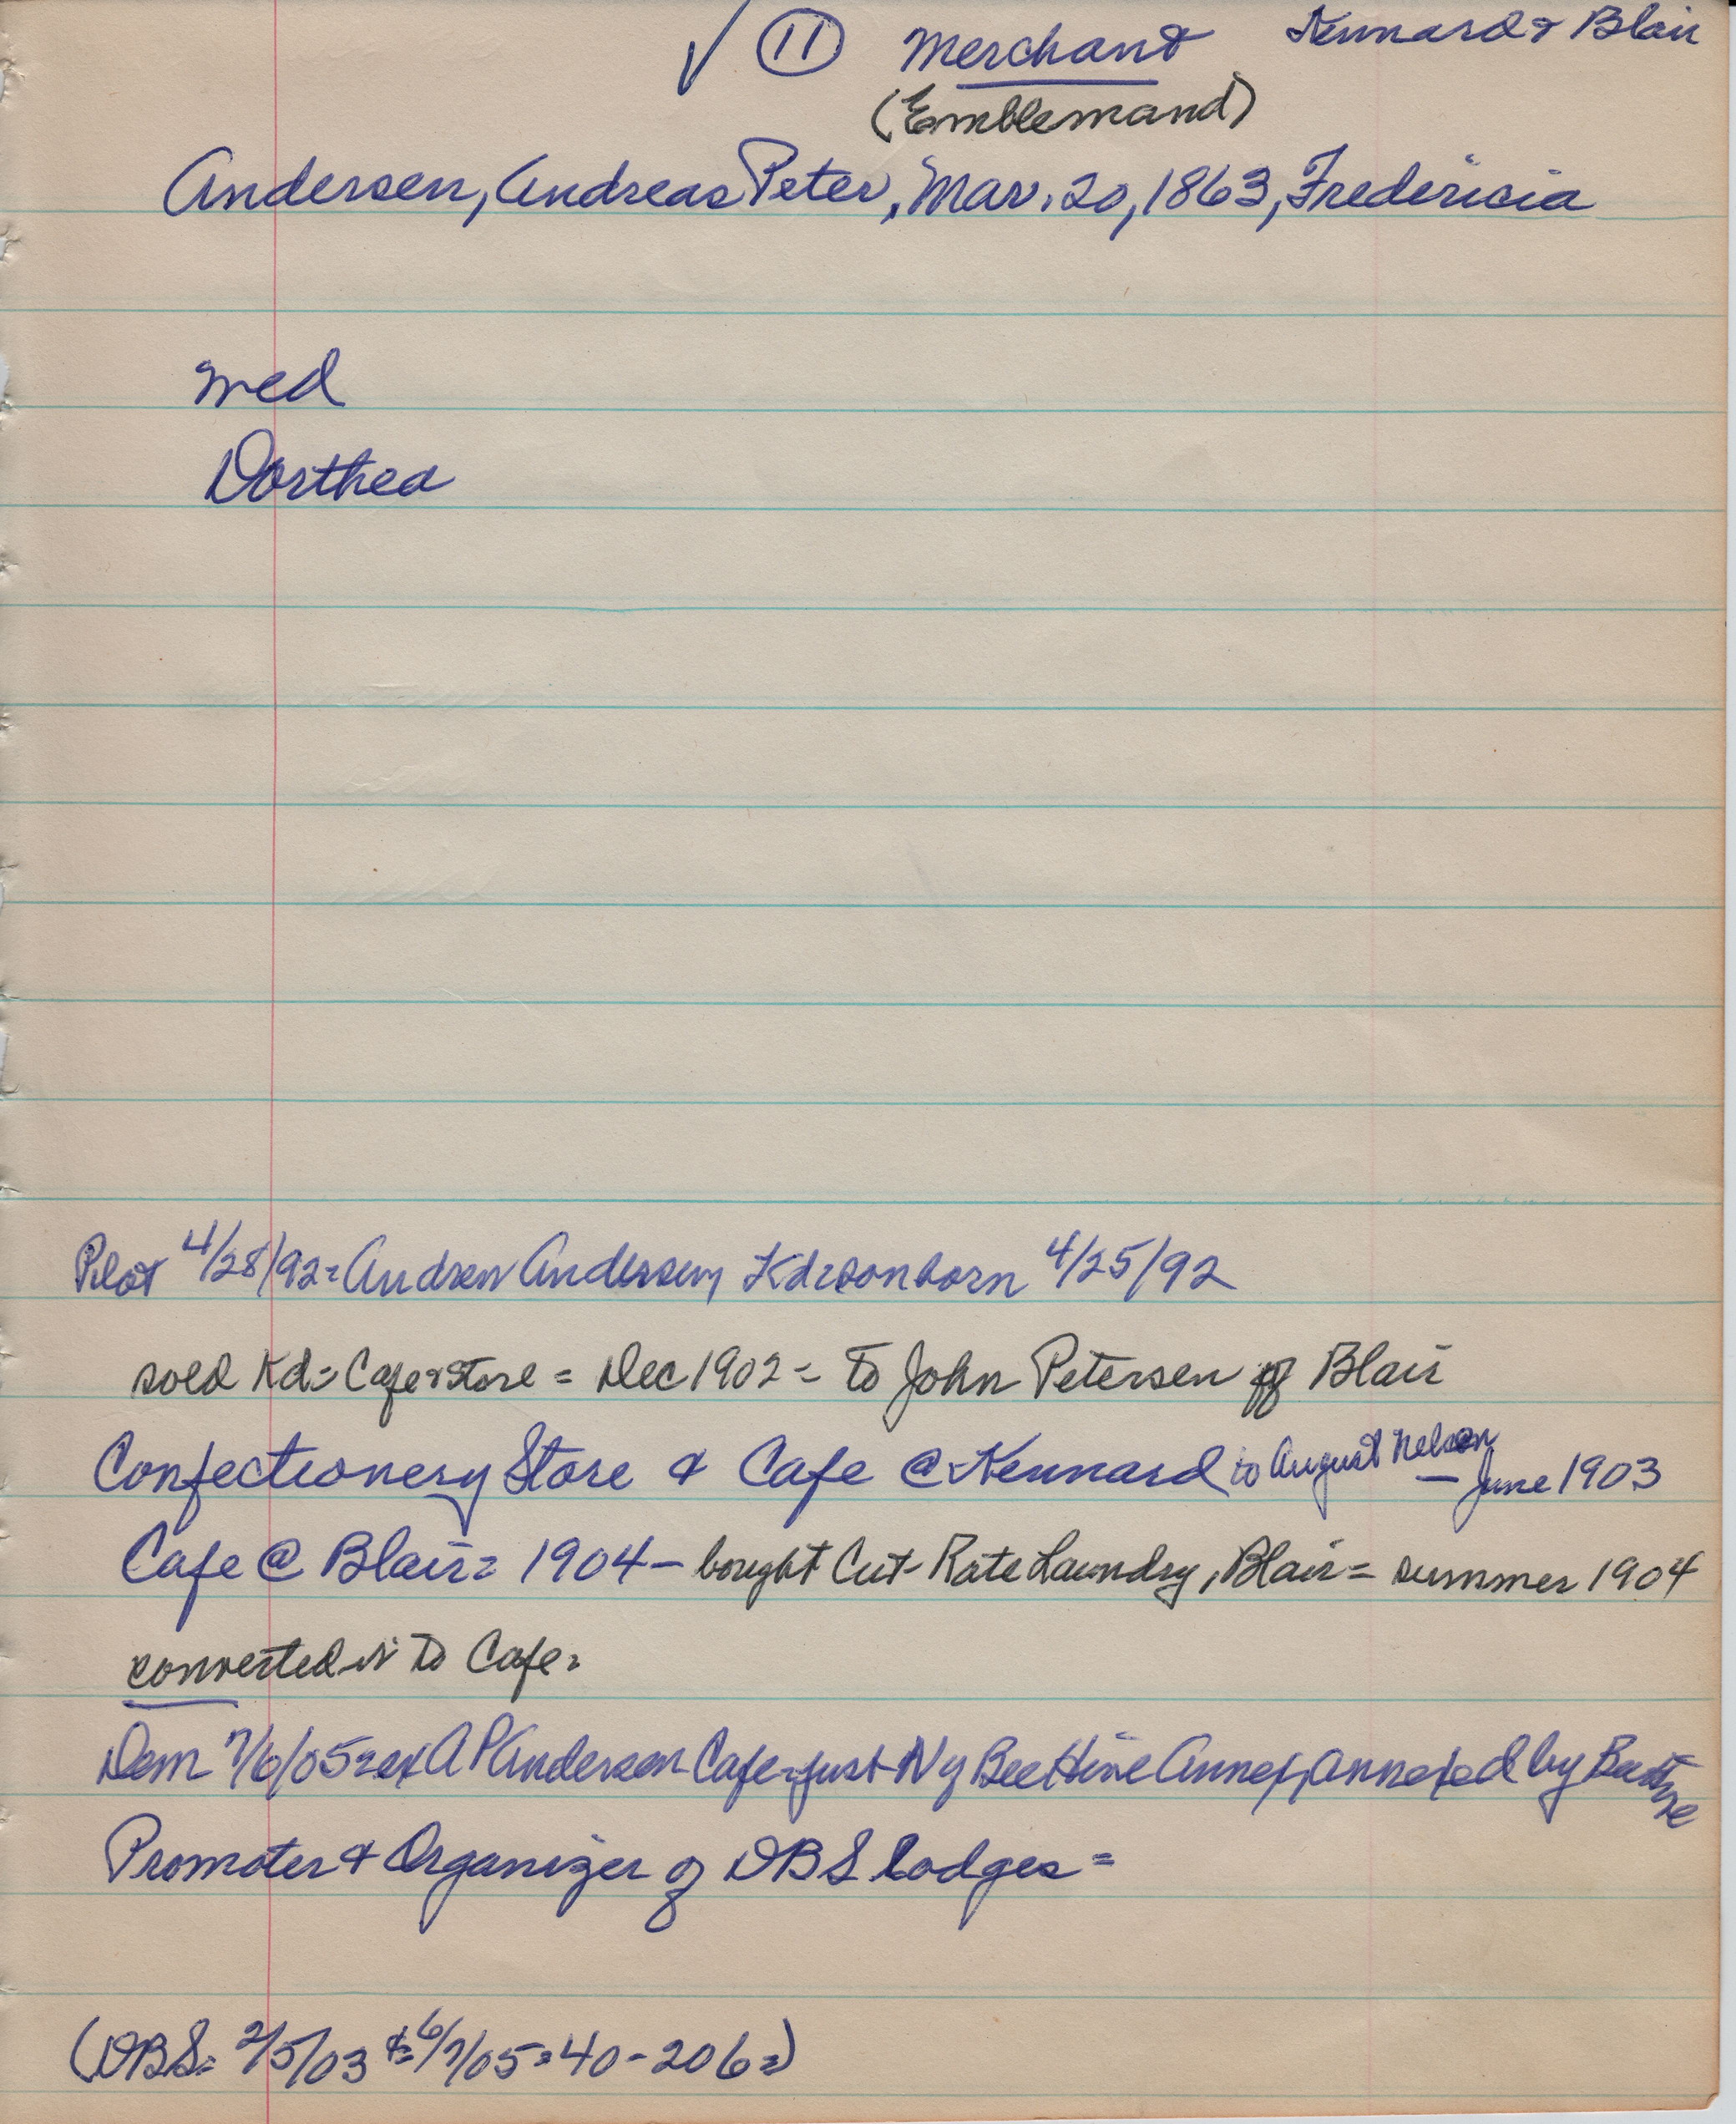 ✓ 11 Merchant Kennard & Blair
(Emblemand)
Andersen, Andreas Peter, Mar. 20, 1863, Fredericia
med
Dorthea
Pilot 4/28/92= Andrew Andersen, Kd=son born 4/25/92
sold Kd= Cafe & Store = Dec 1902 = to John Petersen of Blair
Confectionery Store & Cafe @ Kennard to August Nelson – June 1903
Cafe @ Blair= 1904 – bought Cut-Rate Laundry, Blair= summer 1904
converted it to Cafe=
Dem 7/6/05= ex A P Andersen Cafe= just N of Bee Hive Annex, annexed by
Promoter & Organizer of DBS lodges=
(DBS= 2/5/03 & 6/7/05=40-206=)